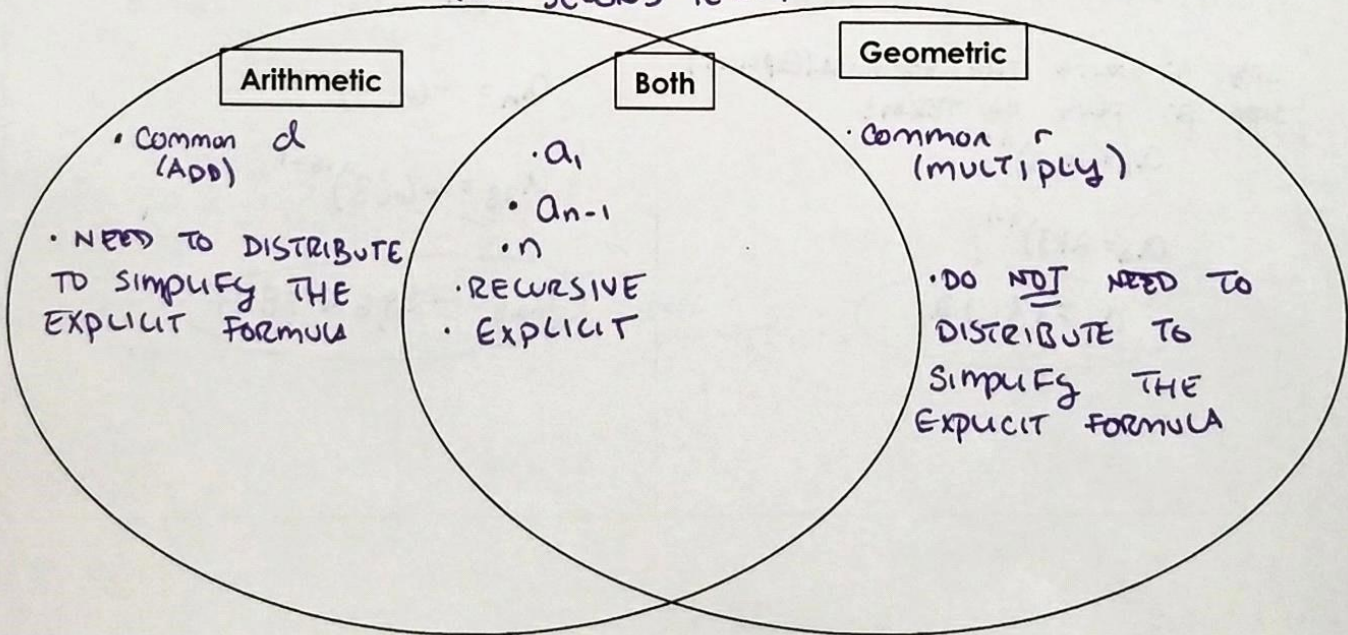 Arithmetic
• Common d
(ADD)
• NEED TO DISTRIBUTE
TO SIMPLIFY THE
EXPLICIT FORMULA
Both
• a₁
• aₙ₋₁
• n
• RECURSIVE
• EXPLICIT
Geometric
• Common r
(MULTIPLY)
• DO NOT NEED TO
DISTRIBUTE TO
SIMPLIFY THE
EXPLICIT FORMULA